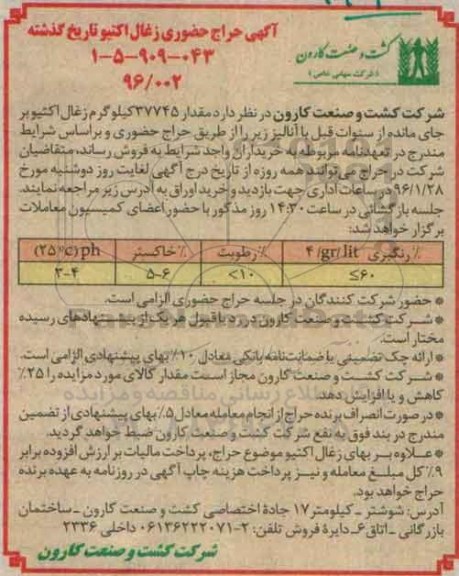 آگهی حراج حضوری زغال اکتیو تاریخ گذشته
۱-۵-۹۰۹-۰۴۳
۹۶/۰۰۲
کشت و صنعت کارون
(شرکت سهامی خاص)
شرکت کشت و صنعت کارون در نظر دارد مقدار ۳۷۷۴۵ کیلوگرم زغال اکتیو بر
جای مانده از سنوات قبل با آنالیز زیر را از طریق حراج حضوری و براساس شرایط
مندرج در تعهدنامه مربوطه به خریداران واجد شرایط به فروش رساند، متقاضیان
شرکت در حراج می‌توانند همه روزه از تاریخ درج آگهی لغایت روز دوشنبه مورخ
۹۶/۱/۲۸ در ساعات اداری جهت بازدید و خرید اوراق به آدرس زیر مراجعه نمایند.
جلسه بازگشائی در ساعت ۱۴:۳۰ روز مذکور با حضور اعضای کمیسیون معاملات
برگزار خواهد شد:
٪رنگبری ۴/gr/lit ٪رطوبت ٪خاکستر ph(۲۵°c)
≤۶۰ <۱۰ ۵-۶ ۳-۴
* حضور شرکت کنندگان در جلسه حراج حضوری الزامی است.
* شرکت کشت و صنعت کارون در رد یا قبول هر یک از پیشنهادهای رسیده
مختار است.
* ارائه چک تضمینی یا ضمانت‌نامه بانکی معادل ۱۰٪ بهای پیشنهادی الزامی است.
* شرکت کشت و صنعت کارون مجاز است مقدار کالای مورد مزایده را ۲۵٪
کاهش و یا افزایش دهد.
* در صورت انصراف برنده حراج از انجام معامله معادل ۵٪ بهای پیشنهادی از تضمین
مندرج در بند فوق به نفع شرکت کشت و صنعت کارون ضبط خواهد گردید.
* علاوه بر بهای زغال اکتیو موضوع حراج، پرداخت مالیات بر ارزش افزوده برابر
۹٪ کل مبلغ معامله و نیز پرداخت هزینه چاپ آگهی در روزنامه به عهده برنده
حراج خواهد بود.
آدرس: شوشتر ـ کیلومتر ۱۷ جاده اختصاصی کشت و صنعت کارون ـ ساختمان
بازرگانی ـ اتاق ۶ـ دایره فروش تلفن: ۲-۰۶۱۳۶۲۲۲۰۷۱ داخلی ۲۳۳۶
شرکت کشت و صنعت کارون